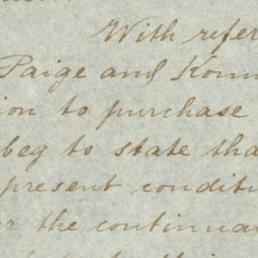 With refer
Paige and Konn
ion to purchase
beg to state tha
present conditi
r the continua